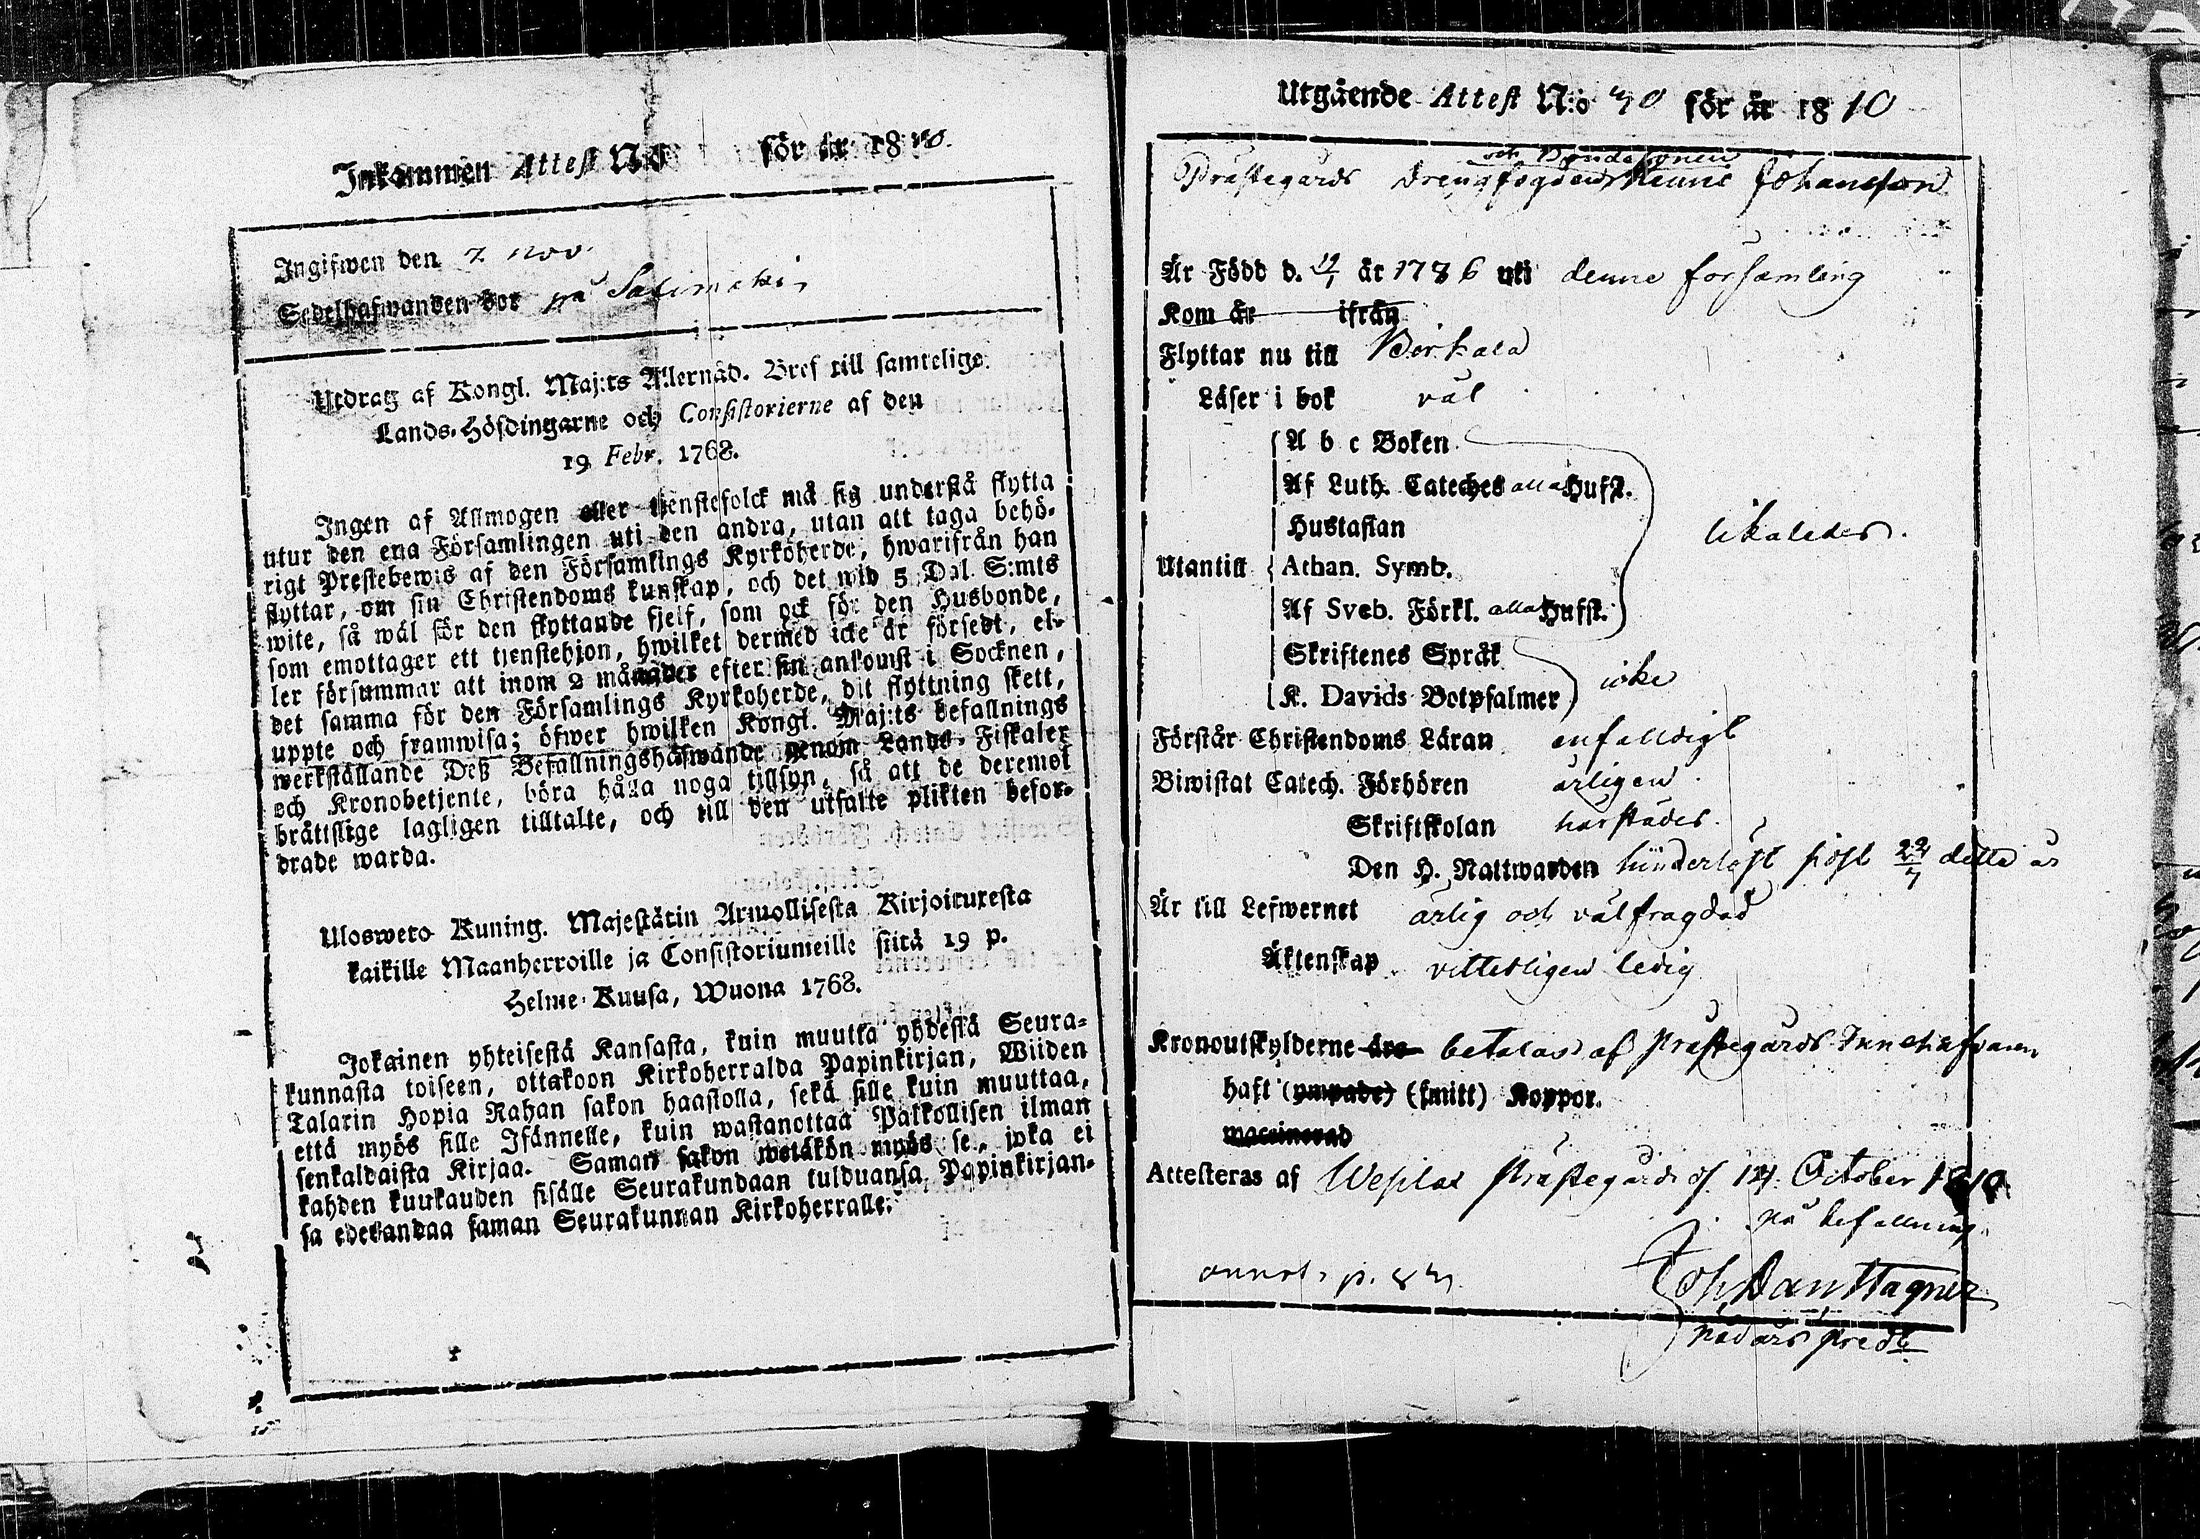 Inkommen Attest N:o för år 1810.
Ingifwen den 7 nov.
Sedelhafwanden bor på Salimaki
Utdrag af Kongl. Maj:ts Allernåd. Bref till samtelige
Lands-Höfdingarne och Consistorierne af den
19 Febr. 1768.
Ingen af Allmogen eller tjenstefolck må sig understå flytta
utur den ena Församlingen uti den andra, utan att taga behö-
rigt Prestebewis af den Församlings Kyrkoherde, hwarifrån han
flyttar, om sin Christendoms kunskap, och det wid 5 Dal. S:mts
wite, så wäl för den flyttande sjelf, som ock för den Husbonde,
som emottager ett tjenstehjon, hwilket dermed icke är försedt, el-
ler försummar att inom 2 månader efter sin ankomst i Socknen,
det samma för den Församlings Kyrkoherde, dit flyttning skett,
uppte och framwisa; öfwer hwilken Kongl. Maj:ts befallnings
werkställande Deß Befallningshafwande genom Lands-Fiskaler
och Kronobetjente, böra hålla noga tillsyn, så att de deremot
bråttslige lagligen tilltalte, och till den utsatte plikten befor-
drade warda.
Ulosweto Kuning. Majestätin Armollisesta Kirjoituxesta
kaikille Maanherroille ja Consistoriumeille siitä 19 p.
Helme-Kuusa, Wuona 1768.
Jokainen yhteisestä Kansasta, kuin muutta yhdestä Seura-
kunnasta toiseen, ottakoon Kirkoherralda Papinkirjan, Wiiden
Talarin Hopia Rahan sakon haastolla, sekä sille kuin muuttaa,
että myös sille Isännelle, kuin wastanottaa Palkollisen ilman
senkaldaista Kirjaa. Saman sakon wetäkön myös se, joka ei
kahden kuukauden sisälle Seurakundaan tulduansa Papinkirjan-
sa edesandaa saman Seurakunnan Kirkoherralle.
Utgående Attest N:o 40 för år 1810
och Bondesonen
Prästegårds drengfogden Johansson
Är Född d. år 1786 uti denne församling
Kom år ifrån
Flyttar nu till Birkala
Läser i bok väl
A b c Boken
Af Luth. Cateches alla Hufst.
Hustaflan likaledes.
Utantill Athan. Symb.
Af Sveb. Förkl. alla Hufst.
Skriftenes Språk
K. Davids Botpsalmer icke
Förstår Christendoms Läran enfalldigt
Biwistat Catech. Förhören årligen
Skriftskolan härstädes.
Den H. Nattwarden hinderlöst sist detta år
Är till Lefwernet ärlig och välfrägdad
Äktenskap vitterligen ledig
Kronoutskylderne äro betalas af Prästegårds Innehafvaren
haft (ympade) (smitt) Koppor.
waccinerad
Attesteras af Wesilax Prästegård d. 14. October 1810
på befallning
annot. p. 84 Joh. Dan Hagner
Predik